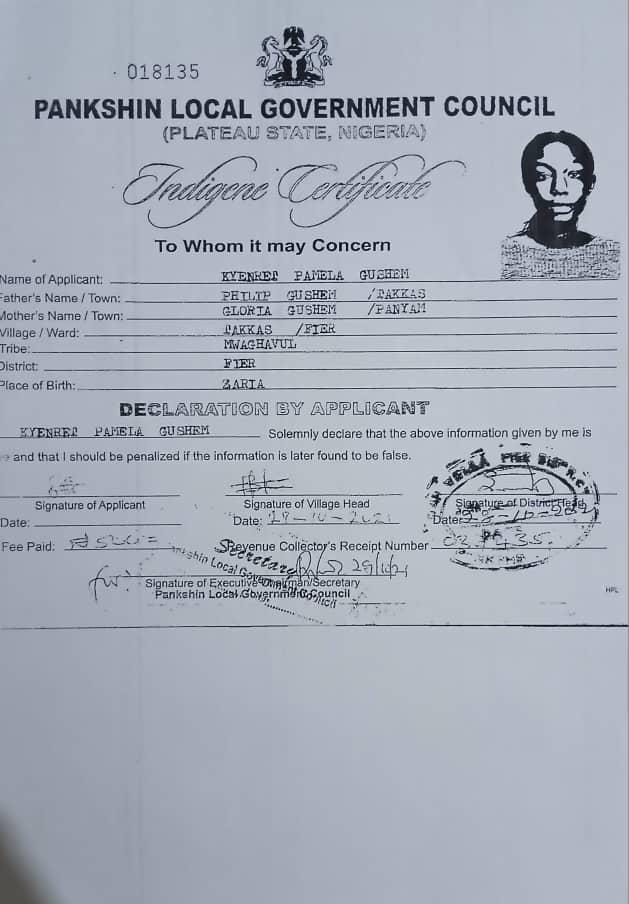 018135
PANKSHIN LOCAL GOVERNMENT COUNCIL
(PLATEAU STATE, NIGERIA)
Indigene Certificate
To Whom it may Concern
Name of Applicant: KYENRET PAMELA GUSHEM
Father's Name / Town: PHILIP GUSHEM /TAKKAS
Mother's Name / Town: GLORIA GUSHEM /PANYAM
Village / Ward: TAKKAS /FIER
Tribe: MWAGHAVUL
District: FIER
Place of Birth: ZARIA
DECLARATION BY APPLICANT
KYENRET PAMELA GUSHEM Solemnly declare that the above information given by me is
and that I should be penalized if the information is later found to be false.
Signature of Applicant Signature of Village Head Signature of District Head
Date: Date: 28-10-2021 Date:
Fee Paid: Revenue Collector's Receipt Number
Secretary 29/10/21
Pankshin Local Government Council
for: Signature of Executive Chairman/Secretary
Pankshin Local Government Council
HPL